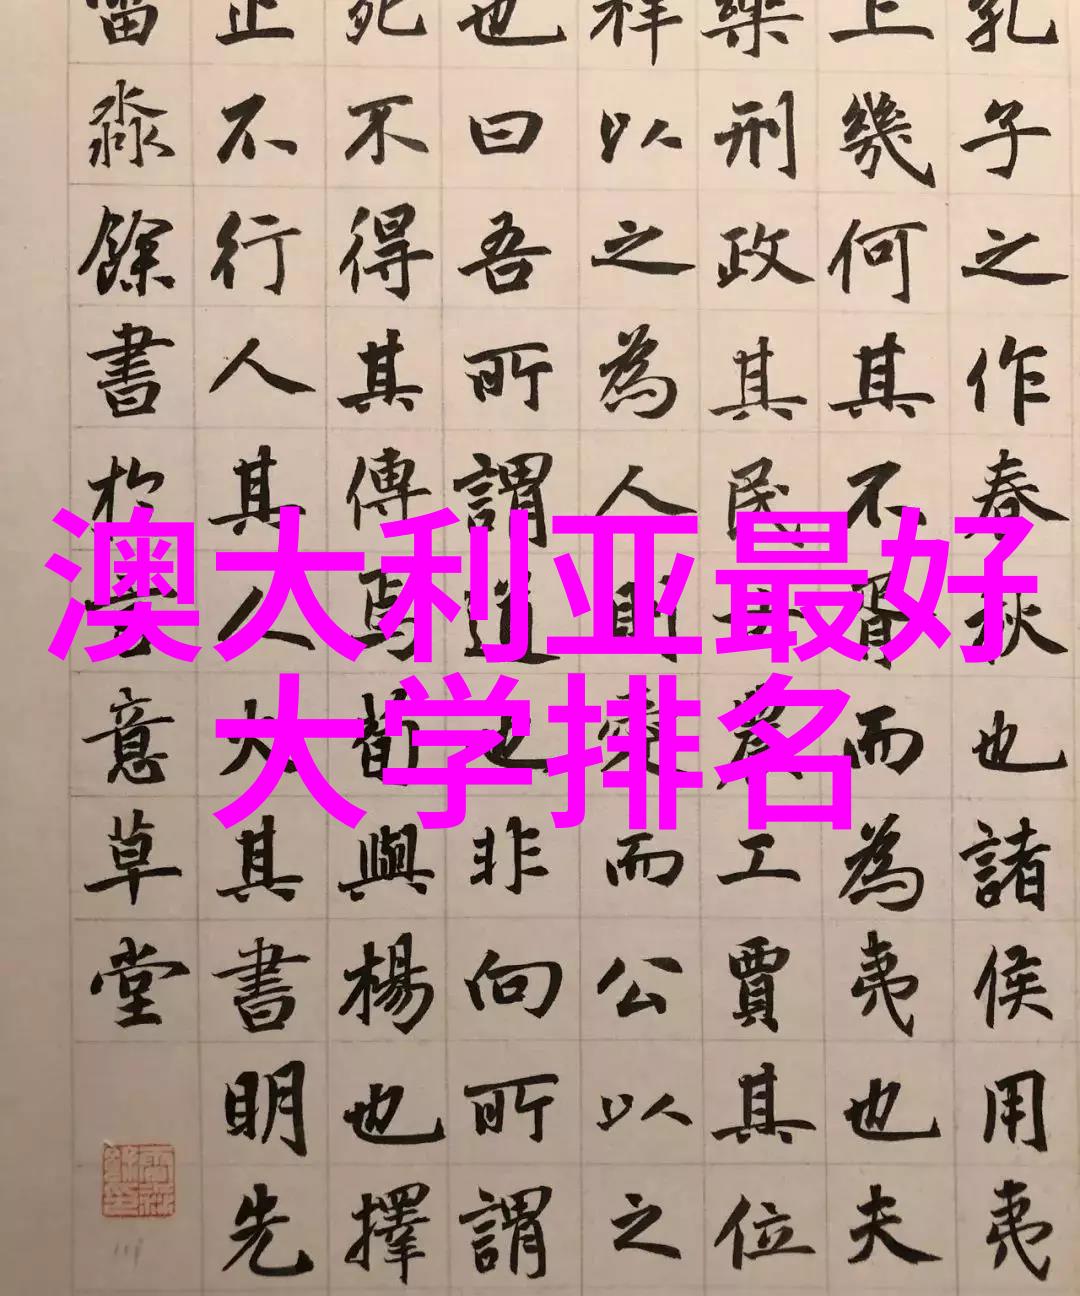 澳大利亚最好
大学排名
孔子之作春秋也諸侯用夷
上幾何其不胥而為夷也夫
樂刑政其民士農工賈其位
祥以之為人則愛而公以之
也曰吾所謂道也非向所謂
死不得其傳焉荀與楊也擇
止不行人其人火其書明先
淼餘書於意草堂